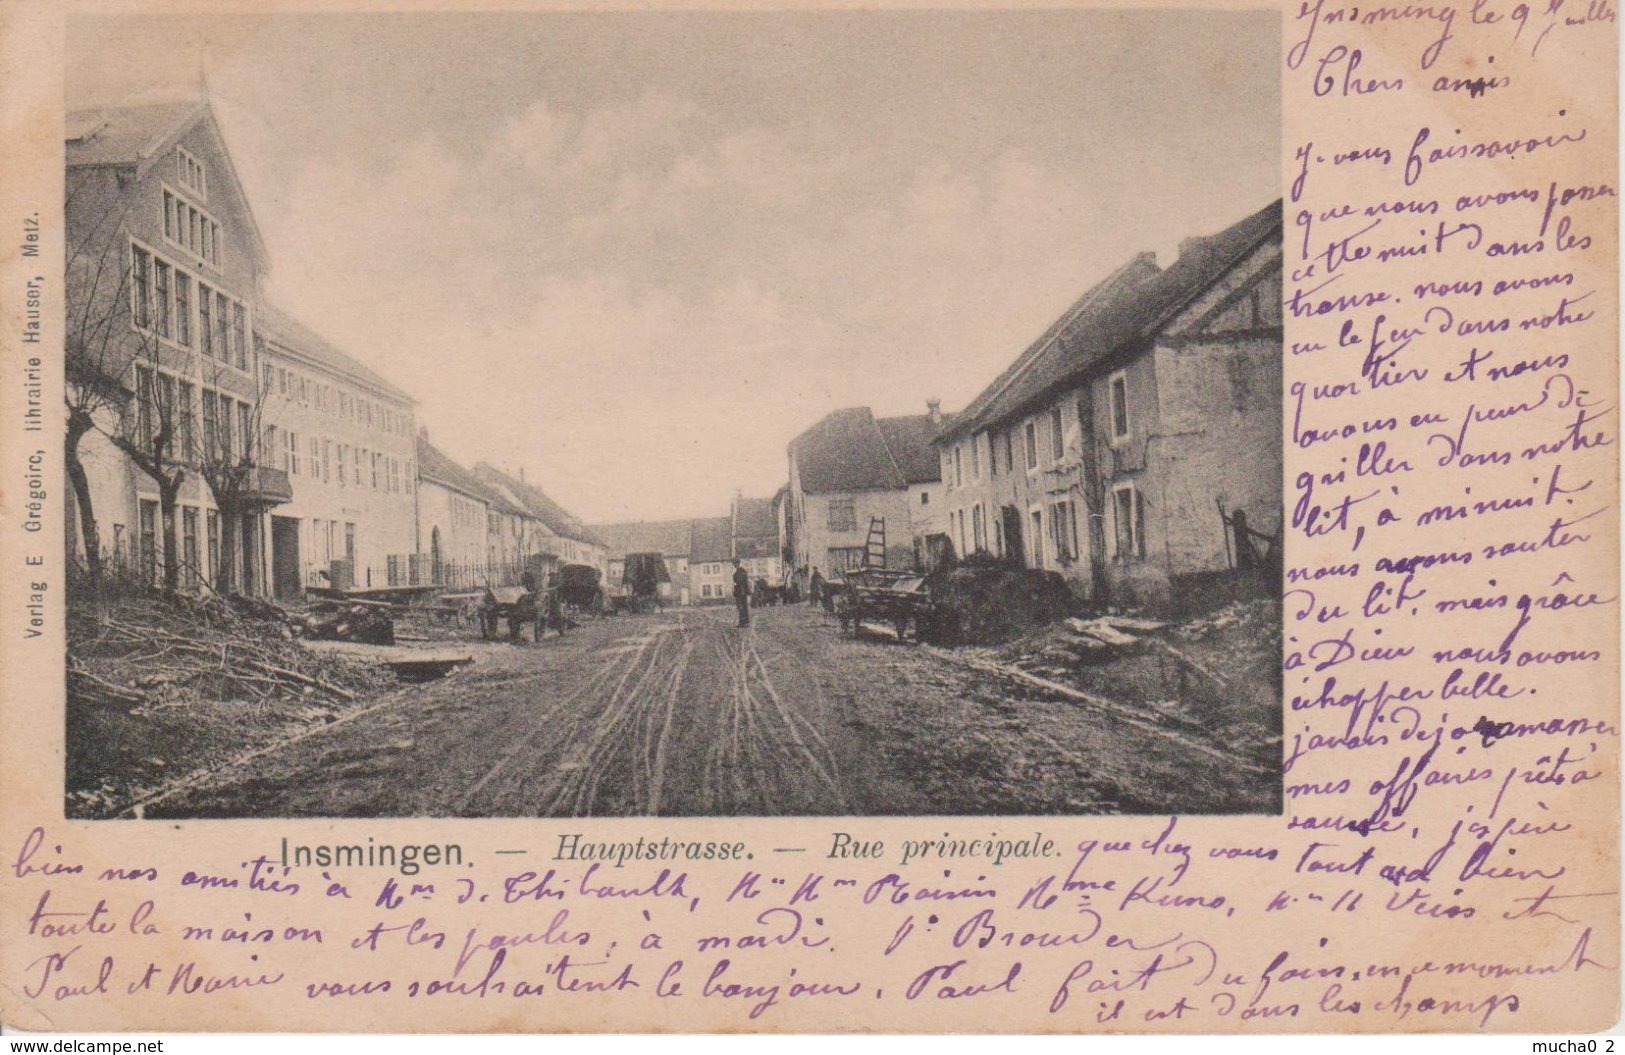 Insming le 9 Juillet
Chers amis
Je vous faissavoir
que nous avons passer
cette nuit dans les
transe. nous avons
eu le feu dans notre
quartier et nous
avons eu peur de
griller dans notre
lit, à minuit.
nous avons sauter
du lit, mais grâce
à Dieu nous avons
échapper belle.
javais deja ramasser
mes affaires prêt à
sauvé, jespère
que chez vous tout va bien
Verlag E Grégoire, librairie Hauser, Metz.
Insmingen. — Hauptstrasse. — Rue principale.
bien nos amitiés à Mme d. Thibault, Mr Mme Raisin Mme Kuno, Veiss et
toute la maison et les poules, à mardi. Brouder
Paul et Marie vous souhaitent le bonjour. Paul fait du foin, en ce moment
il est dans les champs
delcampe.net
mucha0_2